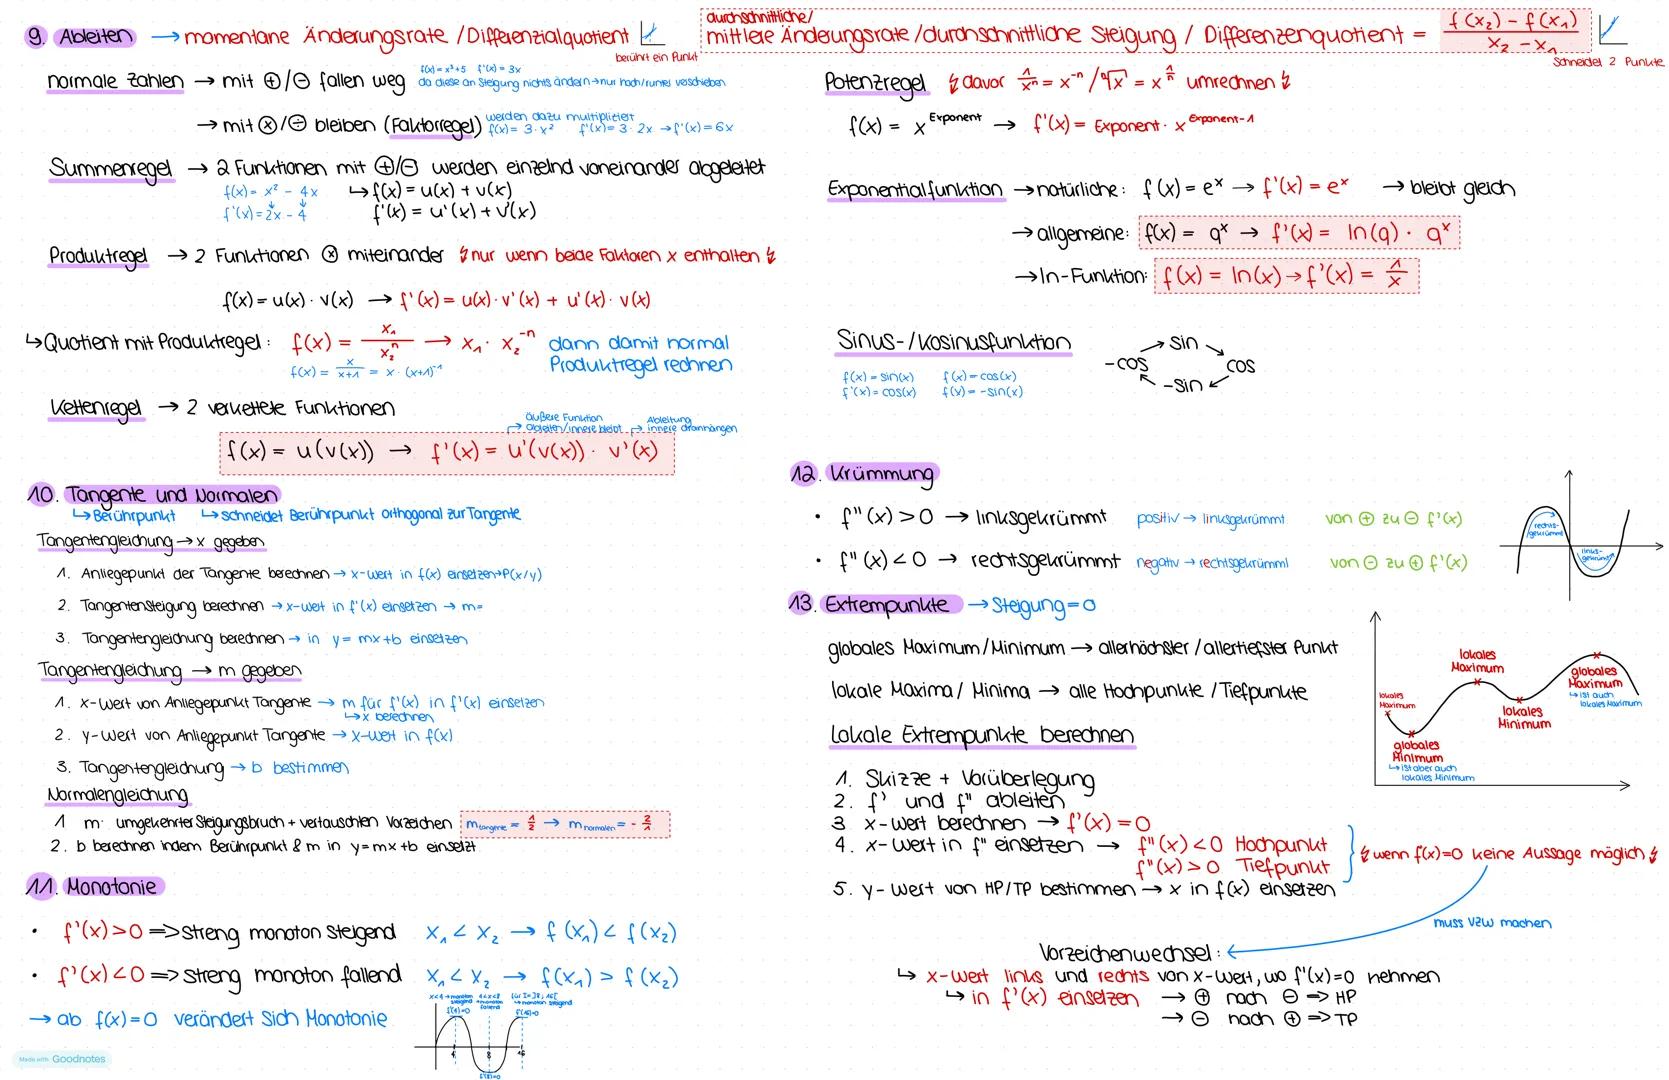 9. Ableiten → momentane Änderungsrate / Differenzialquotient
berührt ein Punkt
durchschnittliche/
mittlere Änderungsrate / durchschnittliche Steigung / Differenzenquotient = f(x₂) - f(x₁) / x₂ - x₁
Schneidet 2 Punkte
normale Zahlen → mit ⊕/⊖ fallen weg
f(x) = x³+5 f'(x) = 3x
da diese an Steigung nichts ändern → nur hoch/runter verschieben
→ mit ⊗/⊖ bleiben (Faktorregel)
werden dazu multipliziert
f(x) = 3·x² f'(x) = 3·2x → f'(x) = 6x
Summenregel → 2 Funktionen mit ⊕/⊖ werden einzelnd voneinander abgeleitet
f(x) = x² - 4x ↳ f(x) = u(x) + v(x)
f'(x) = 2x - 4 f'(x) = u'(x) + v'(x)
Produktregel → 2 Funktionen ⊗ miteinander ↯ nur wenn beide Faktoren x enthalten ↯
f(x) = u(x)·v(x) → f'(x) = u(x)·v'(x) + u'(x)·v(x)
↳ Quotient mit Produktregel: f(x) = x₁ / x₂ⁿ → x₁·x₂⁻ⁿ dann damit normal
Produktregel rechnen
f(x) = x / x+1 = x·(x+1)⁻¹
Kettenregel → 2 verkettete Funktionen
äußere Funktion
ableiten/innere bleibt
Ableitung
innere dranhängen
f(x) = u(v(x)) → f'(x) = u'(v(x))·v'(x)
10. Tangente und Normalen
↳ Berührpunkt ↳ schneidet Berührpunkt orthogonal zur Tangente
Tangentengleichung → x gegeben
1. Anliegepunkt der Tangente berechnen → x-Wert in f(x) einsetzen → P(x/y)
2. Tangentensteigung berechnen → x-Wert in f'(x) einsetzen → m=
3. Tangentengleichung berechnen → in y = mx+b einsetzen
Tangentengleichung → m gegeben
1. x-Wert von Anliegepunkt Tangente → m für f'(x) in f'(x) einsetzen
↳ x berechnen
2. y-Wert von Anliegepunkt Tangente → x-Wert in f(x)
3. Tangentengleichung → b bestimmen
Normalengleichung
1 m: umgekehrter Steigungsbruch + vertauschten Vorzeichen m tangente = 1/2 → m normalen = - 2/1
2. b berechnen indem Berührpunkt & m in y = mx+b einsetzt
11. Monotonie
• f'(x) > 0 => streng monoton steigend x₁ < x₂ → f(x₁) < f(x₂)
• f'(x) < 0 => streng monoton fallend x₁ < x₂ → f(x₁) > f(x₂)
→ ab f(x) = 0 verändert sich Monotonie
x<4 → monoton steigend
4<x<8 → monoton fallend
für I=]8; 16[ → monoton steigend
f'(4)=0
f'(16)=0
4 8 16
f'(8)=0
Made with Goodnotes
Potenzregel ↯ davor 1/xⁿ = x⁻ⁿ / ⁿ√x = x^1/n umrechnen ↯
f(x) = x^Exponent → f'(x) = Exponent · x^Exponent-1
Exponentialfunktion → natürliche: f(x) = eˣ → f'(x) = eˣ → bleibt gleich
→ allgemeine: f(x) = qˣ → f'(x) = ln(q) · qˣ
→ ln-Funktion: f(x) = ln(x) → f'(x) = 1/x
Sinus-/Kosinusfunktion
f(x) = sin(x) f(x) = cos(x)
f'(x) = cos(x) f(x) = -sin(x)
→ sin
-cos cos
-sin
12. Krümmung
• f''(x) > 0 → linksgekrümmt positiv → linksgekrümmt von ⊕ zu ⊖ f'(x)
• f''(x) < 0 → rechtsgekrümmt negativ → rechtsgekrümmt von ⊖ zu ⊕ f'(x)
rechts-
gekrümmt
links-
gekrümmt
13. Extrempunkte → Steigung = 0
globales Maximum/Minimum → allerhöchster/allertiefster Punkt
lokale Maxima/Minima → alle Hochpunkte/Tiefpunkte
lokales
Maximum
globales
Minimum
↳ ist aber auch
lokales Minimum
lokales
Maximum
lokales
Minimum
globales
Maximum
↳ ist auch
lokales Maximum
Lokale Extrempunkte berechnen
1. Skizze + Vorüberlegung
2. f' und f'' ableiten
3 x-Wert berechnen → f'(x) = 0
4. x-Wert in f'' einsetzen → f''(x) < 0 Hochpunkt
f''(x) > 0 Tiefpunkt
↯ wenn f(x)=0 keine Aussage möglich ↯
5. y-Wert von HP/TP bestimmen → x in f(x) einsetzen
muss VZW machen
Vorzeichenwechsel:
↳ x-Wert links und rechts von x-Wert, wo f'(x)=0 nehmen
↳ in f'(x) einsetzen → ⊕ nach ⊖ => HP
→ ⊖ nach ⊕ => TP